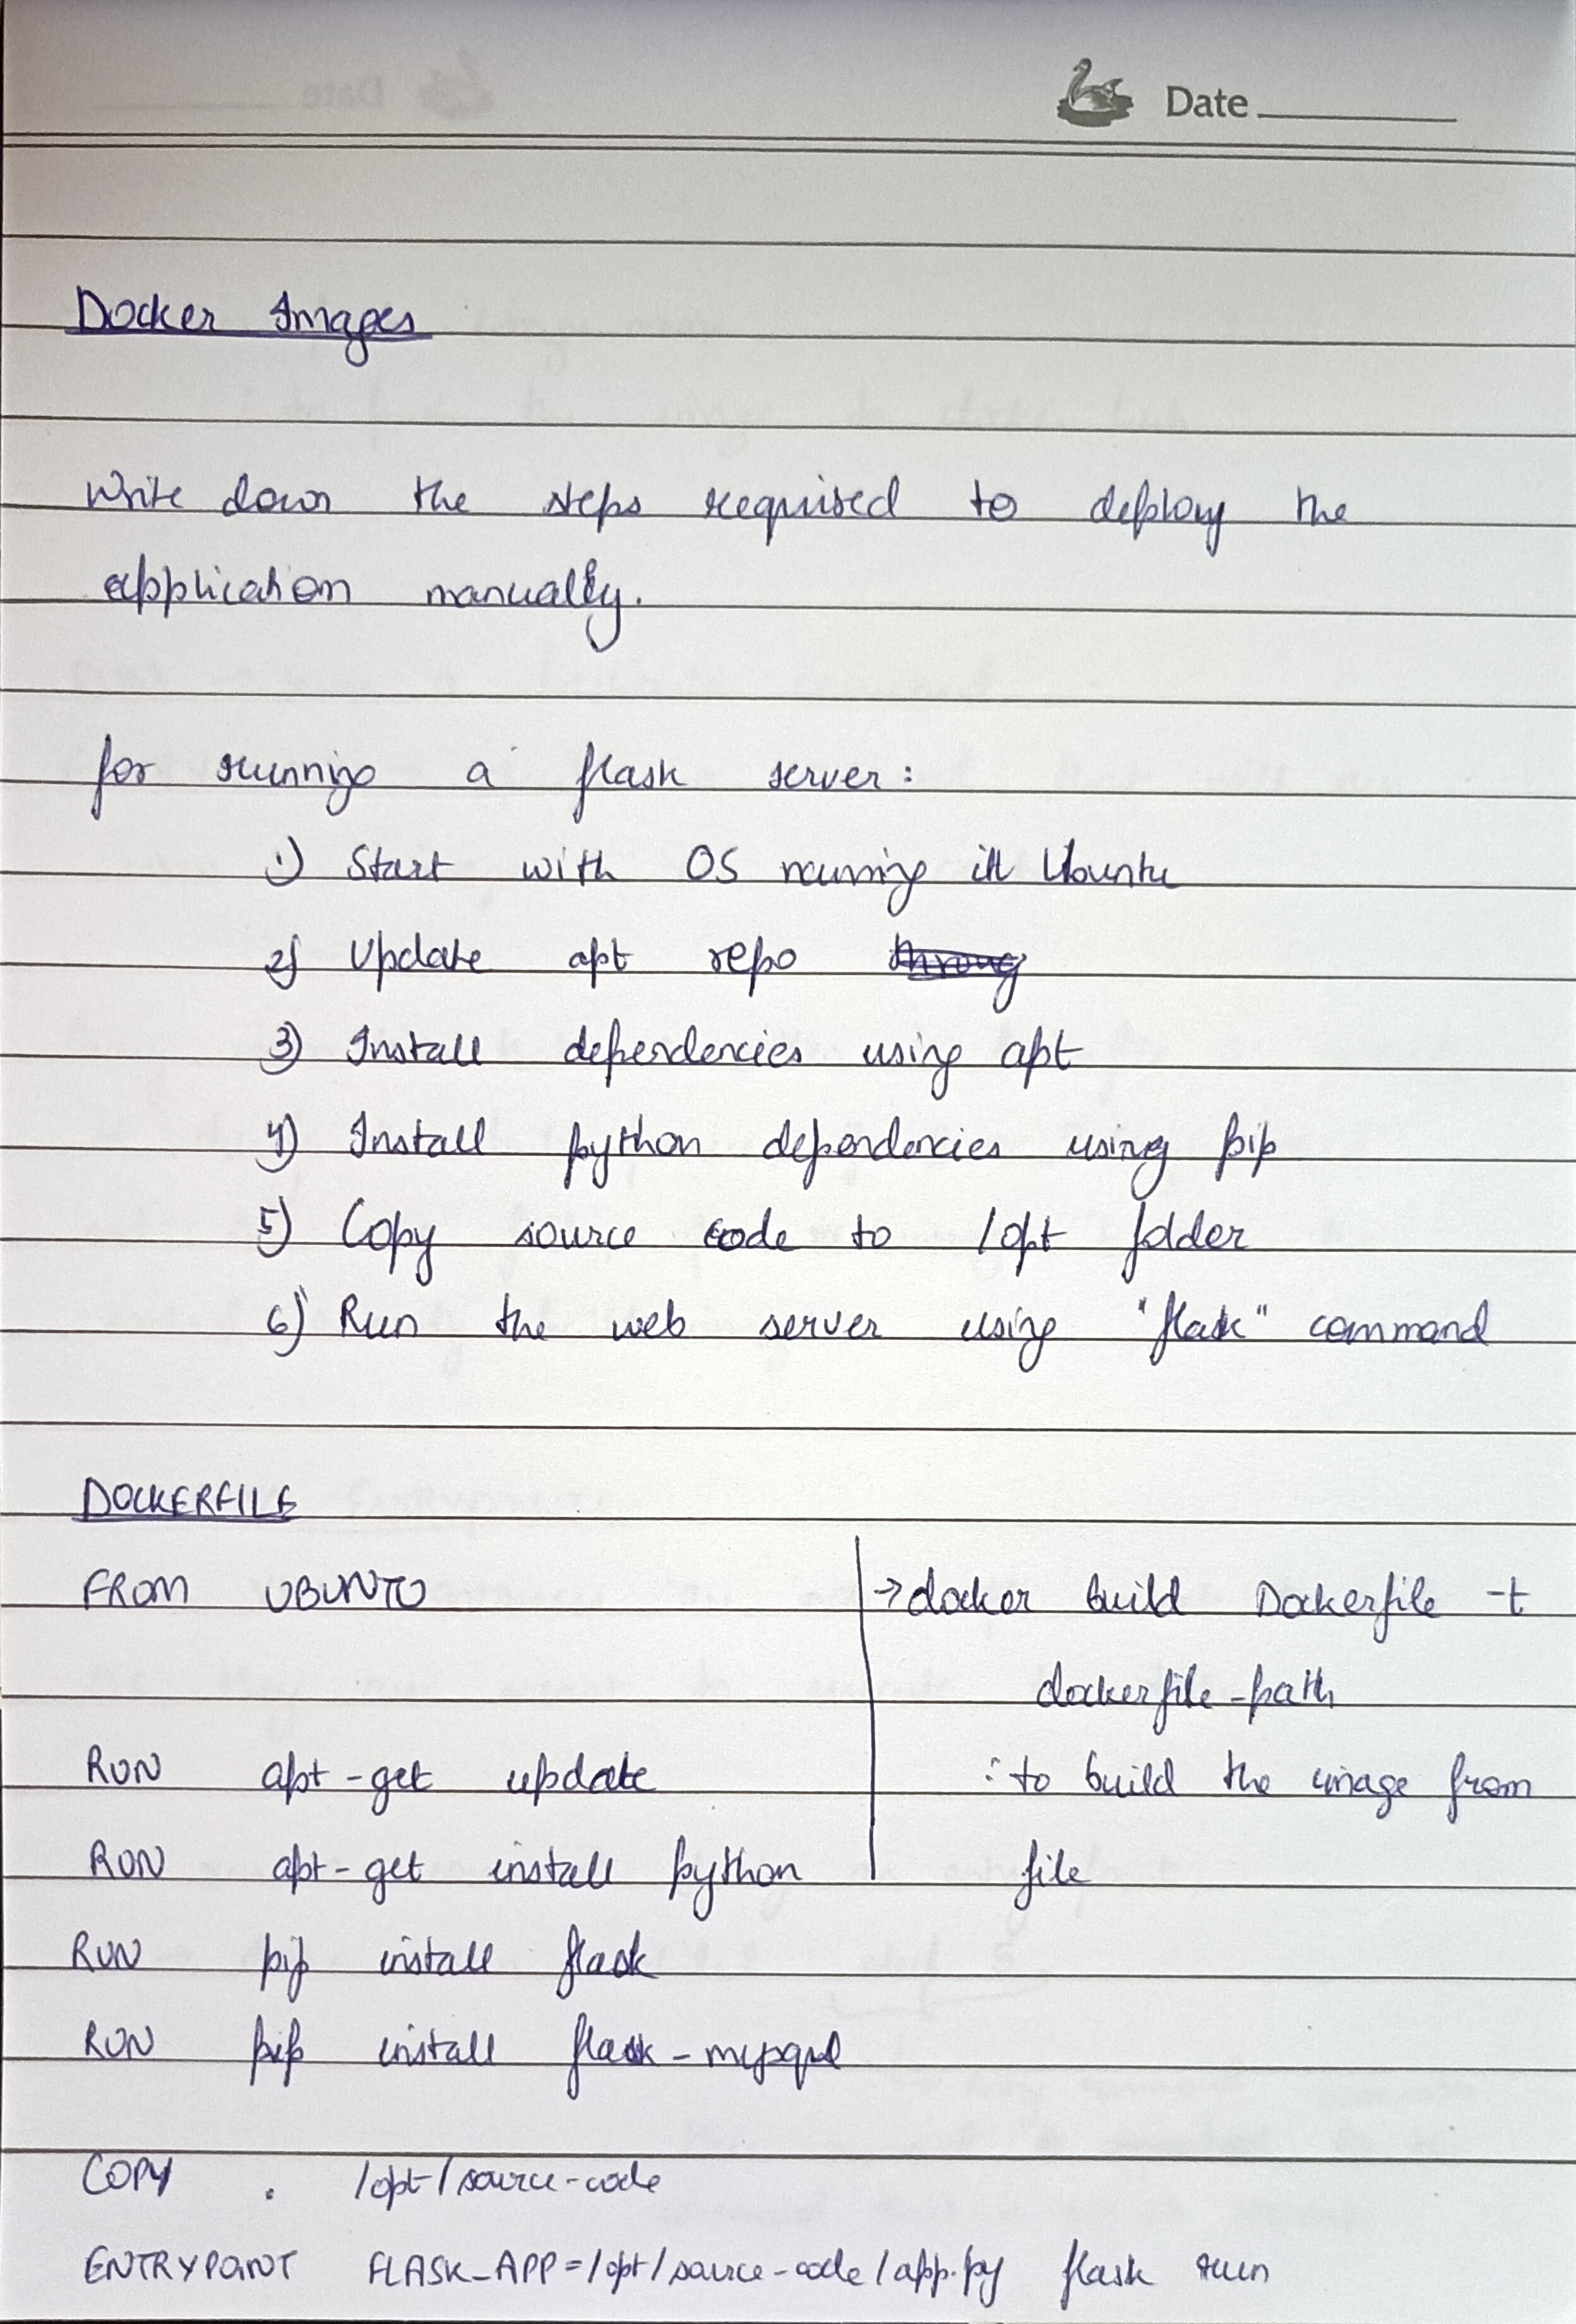 Date
Docker Images
Write down the steps required to deploy the
application manually.
for running a flask server:
1) Start with OS running ill Ubuntu
2) Update apt repo
3) Install dependencies using apt
4) Install python dependencies using pip
5) Copy source code to /opt folder
6) Run the web server using "flask" command
DOCKERFILE
FROM UBUNTU
RUN apt-get update
RUN apt-get install python
RUN pip install flask
RUN pip install flask-mysql
COPY . /opt/source-code
ENTRYPOINT FLASK_APP=/opt/source-code/app.py flask run
→docker build Dockerfile -t
dockerfile-path
: to build the image from
file